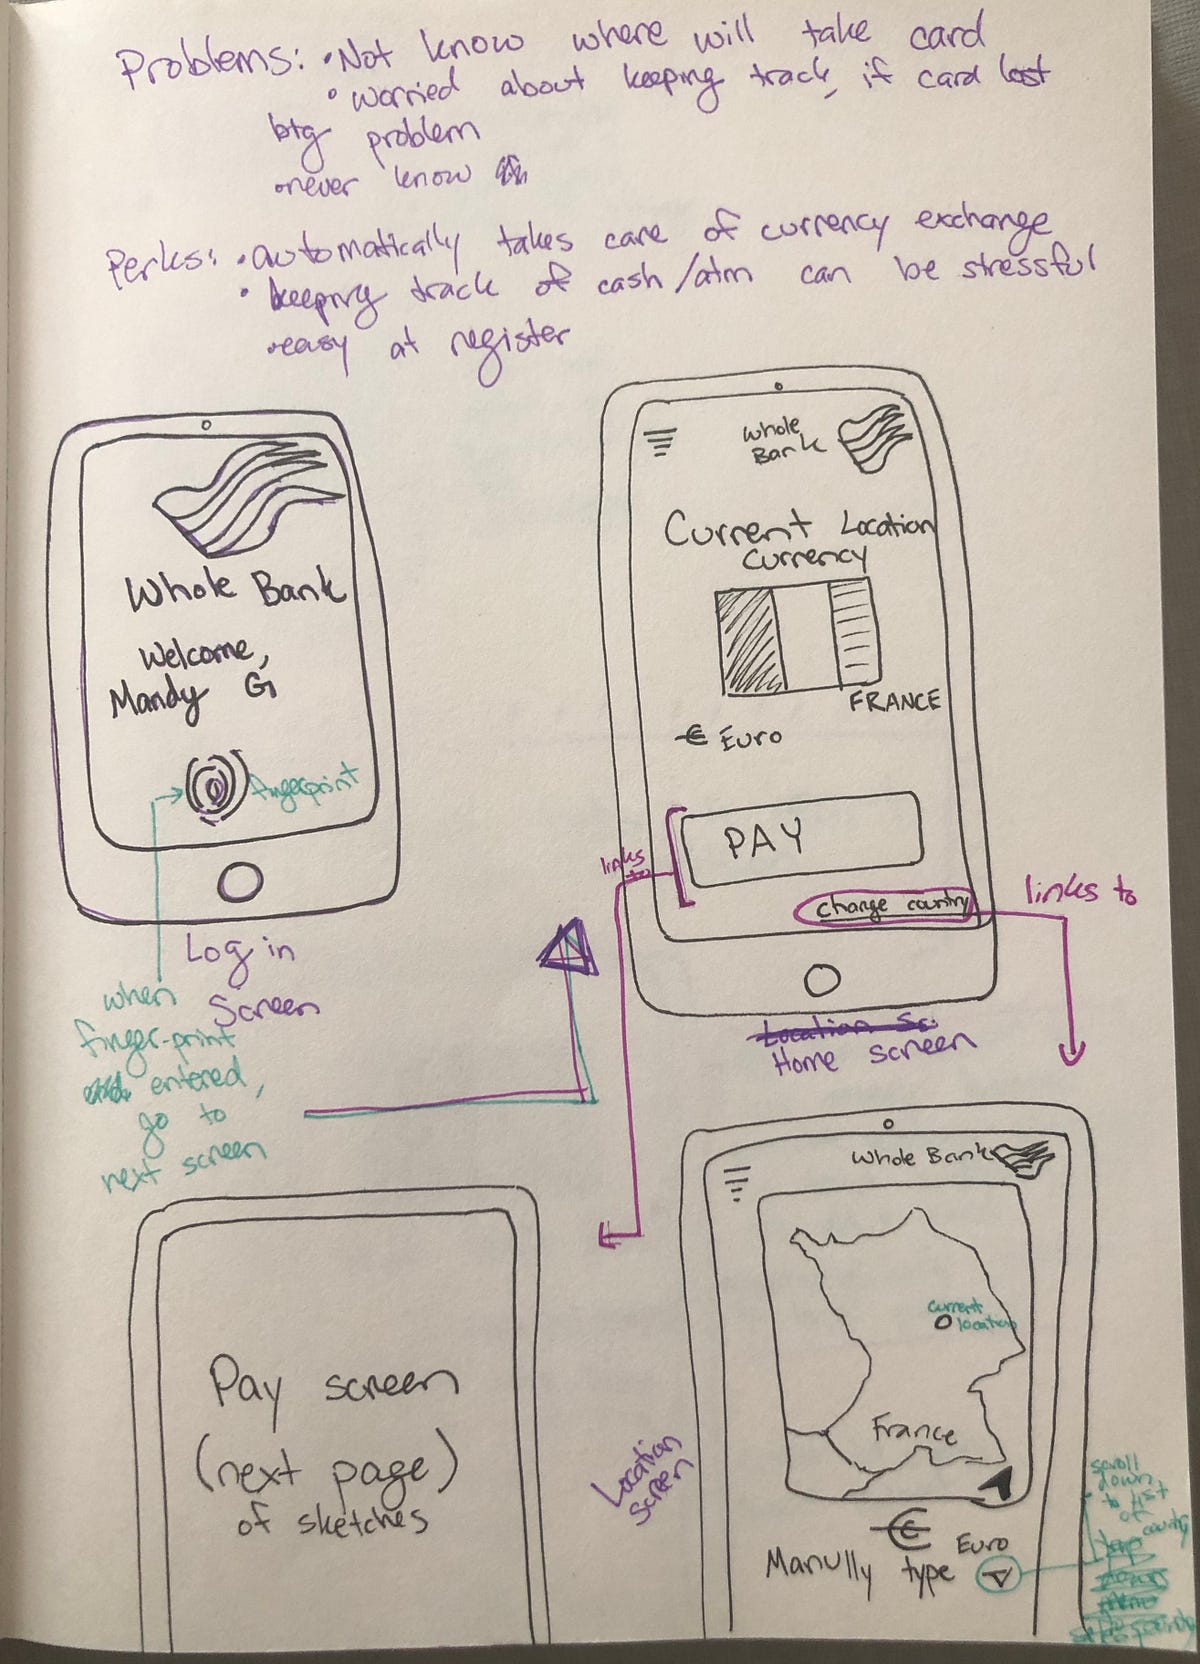 Problems: • Not know where will take card
• worried about keeping track, if card lost
big problem
• never know
Perks: • automatically takes care of currency exchange
• keeping track of cash/atm can be stressful
• easy at register
Whole Bank
Welcome,
Mandy G
fingerprint
Log in
Screen
when
finger-print
entered,
go to
next screen
Whole
Bank
Current Location
Currency
FRANCE
€ Euro
PAY
change country
links
to
links to
Location Sc.
Home screen
Pay screen
(next page)
of sketches
Whole Bank
current
location
France
€ Euro
Manully type
Location
Screen
scroll
down
to list
of
country